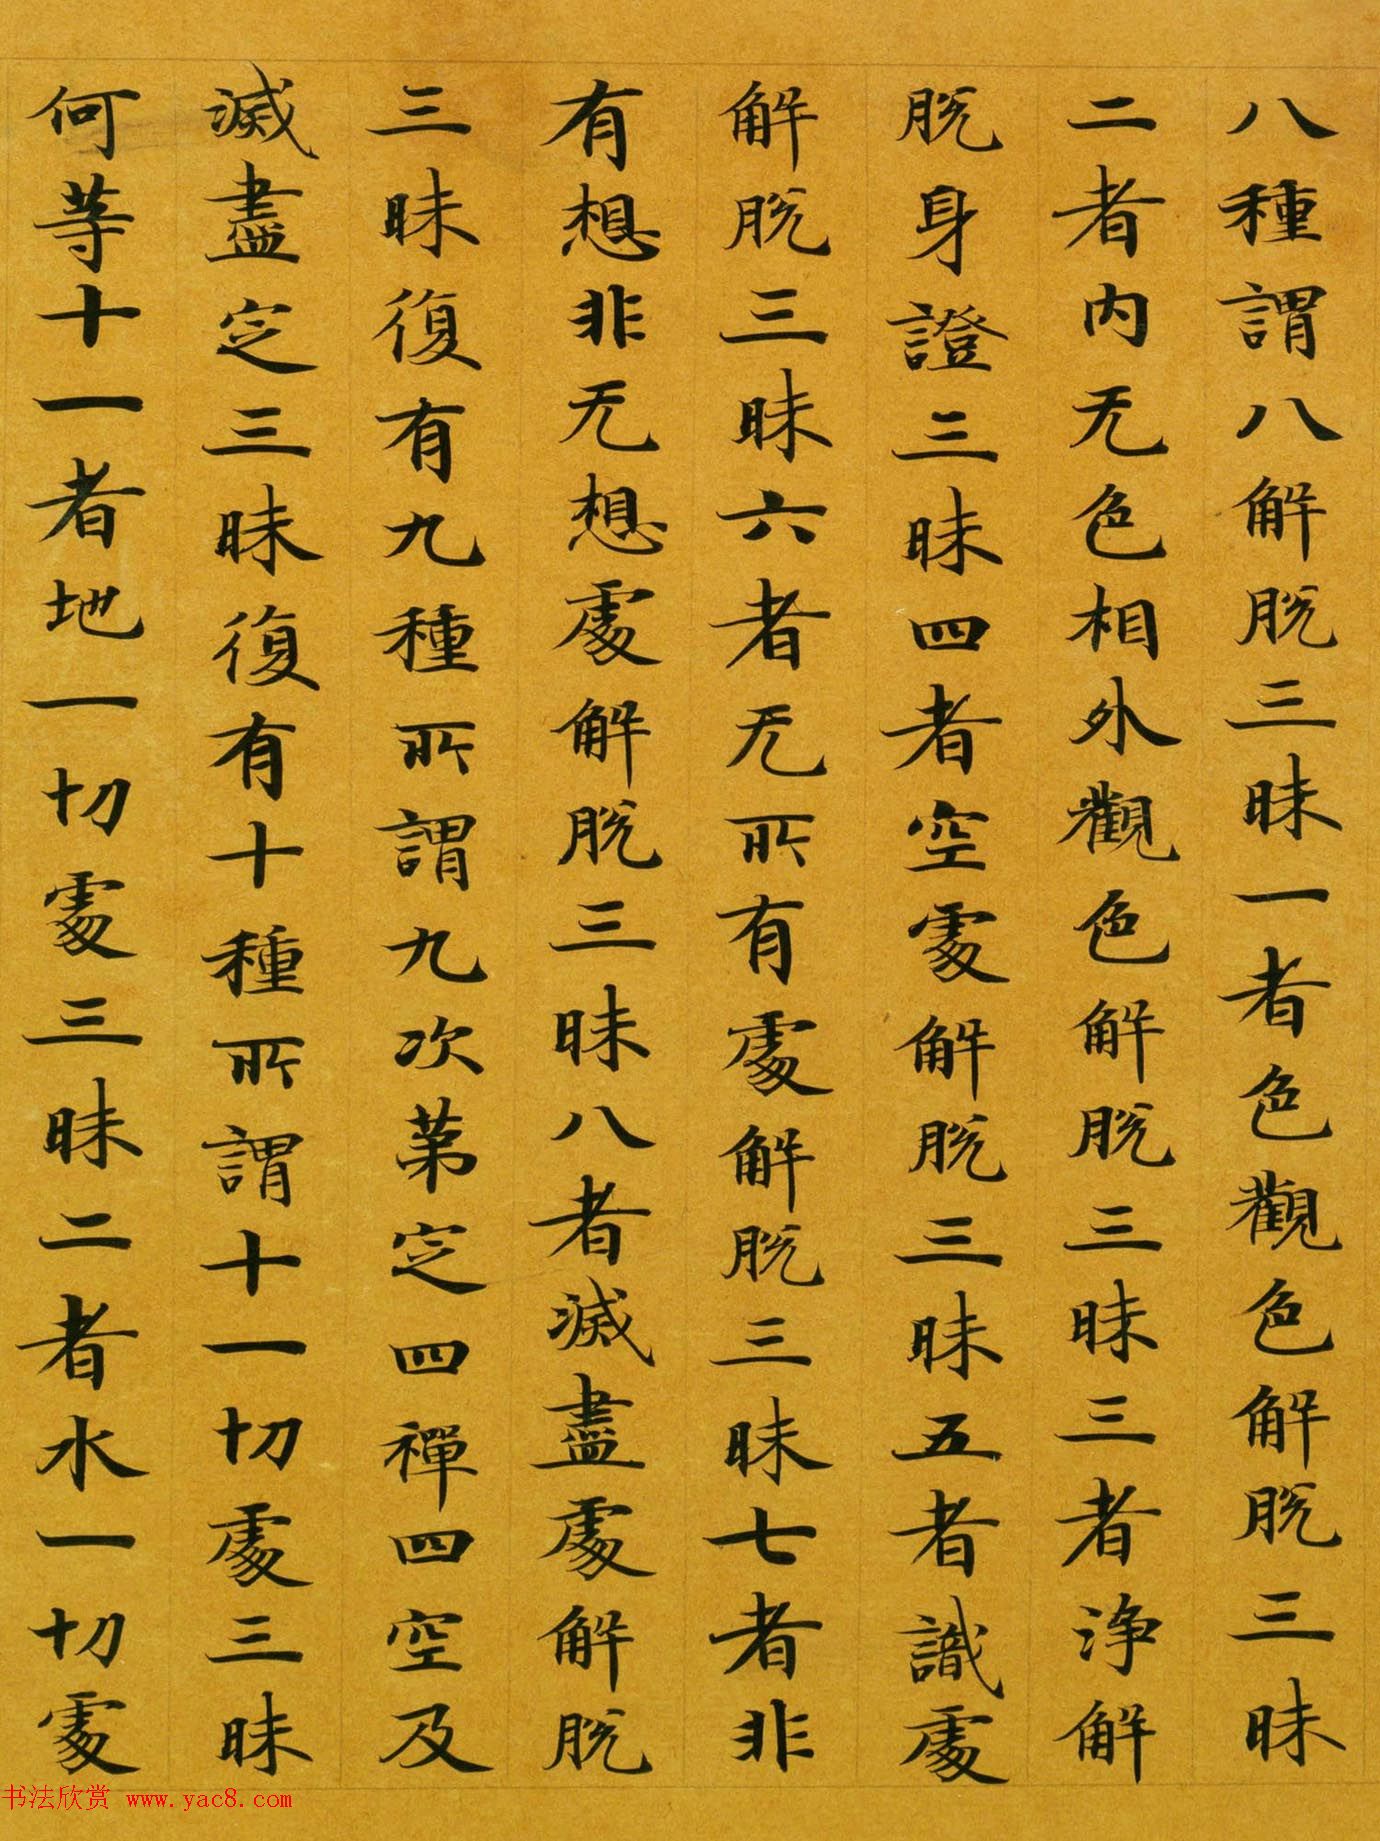 八種謂八解脫三昧一者色觀色解脫三昧
二者内无色相外觀色解脫三昧三者淨解
脫身證三昧四者空處解脫三昧五者識處
解脫三昧六者无所有處解脫三昧七者非
有想非无想處解脫三昧八者滅盡處解脫
三昧復有九種所謂九次第定四禪四空及
滅盡定三昧復有十種所謂十一切處三昧
何等十一者地一切處三昧二者水一切處
书法欣赏 www.yac8.com